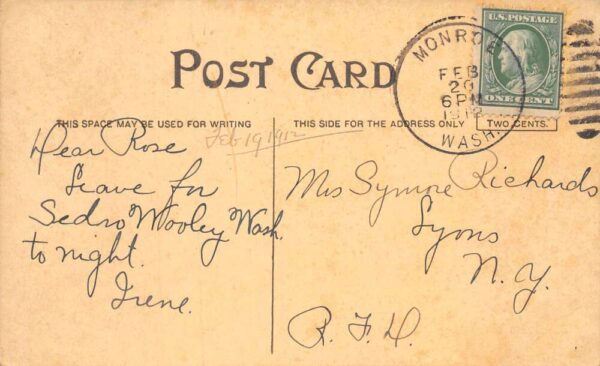 U.S. POSTAGE
ONE CENT
MONROE
FEB
20
6 PM
1912
WASH.
POST CARD
THIS SPACE MAY BE USED FOR WRITING
THIS SIDE FOR THE ADDRESS ONLY
TWO CENTS.
Feb 19 1912
Dear Rose
Leave for
Sedro Wooley Wash.
to night.
Irene.
Mrs Symore Richards
Lyons
N. Y.
R. F. D.